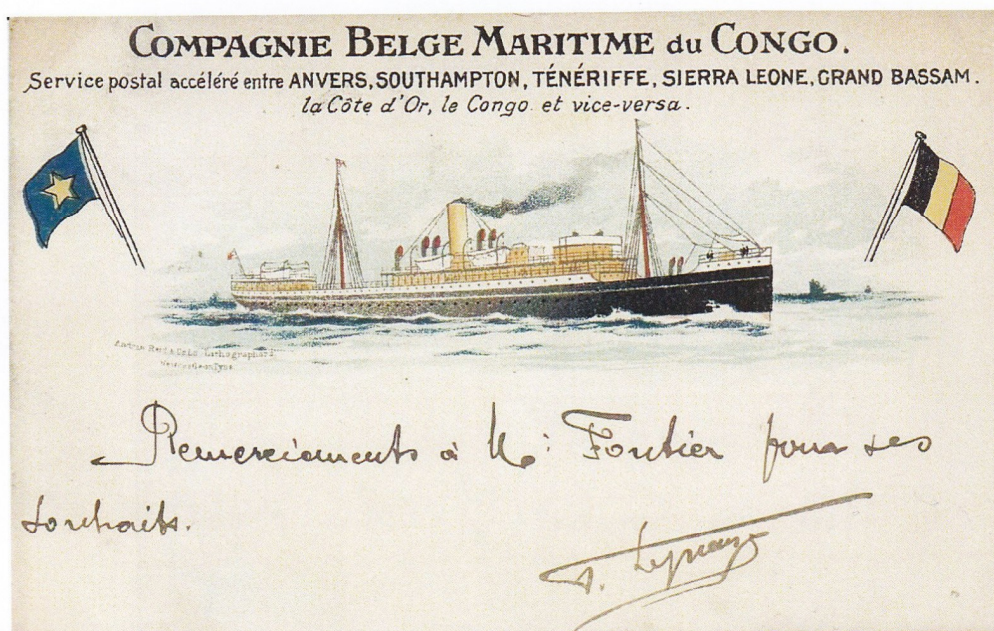 COMPAGNIE BELGE MARITIME du CONGO.
Service postal accéléré entre ANVERS, SOUTHAMPTON, TÉNÉRIFFE, SIERRA LEONE, GRAND BASSAM.
la Côte d'Or, le Congo et vice-versa.
Andrew Reid & Co Ld Lithographers
Newcastle on Tyne
Remerciements à Mr Fortier pour ses
souhaits.